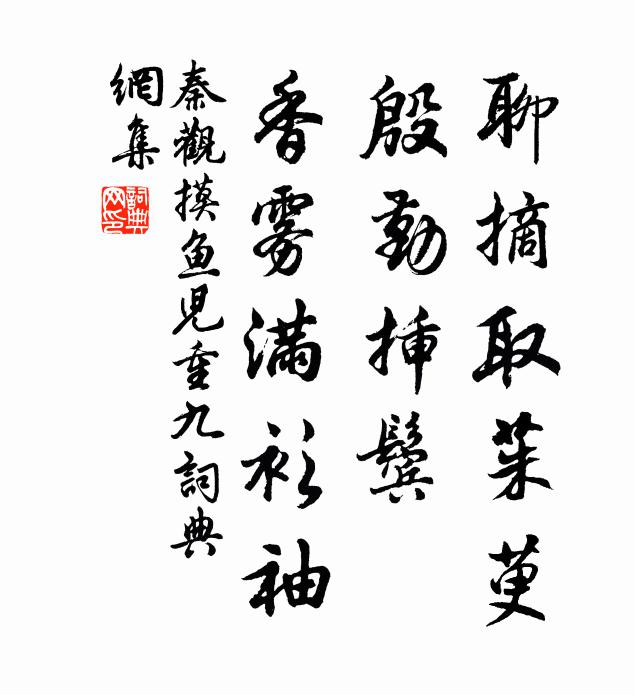 聊摘取茱萸
殷勤插鬓
香雾满衫袖
秦觀摸鱼兒重九詞典
網集
詞典網印